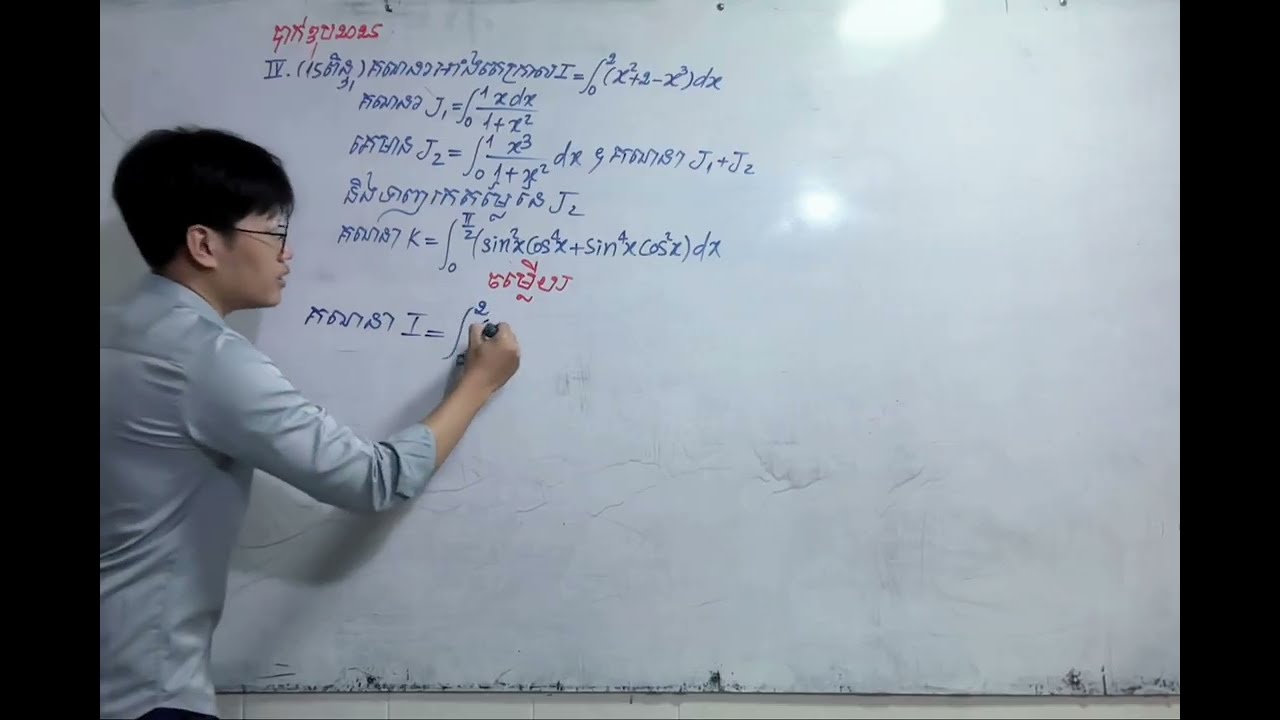 បាក់ឌុប២០២៥
IV. (១៥ពិន្ទុ) គណនាអាំងតេក្រាល I = ∫₀² (x²+2−x³)dx
គណនា J₁ = ∫₀¹ xdx/(1+x²)
គេមាន J₂ = ∫₀¹ x³/(1+x²) dx ; គណនា J₁+J₂
និងទាញរកតម្លៃនៃ J₂
គណនា K = ∫₀^(π/2) (sin²x cos⁴x + sin⁴x cos²x)dx
ចម្លើយ
គណនា I = ∫ ²